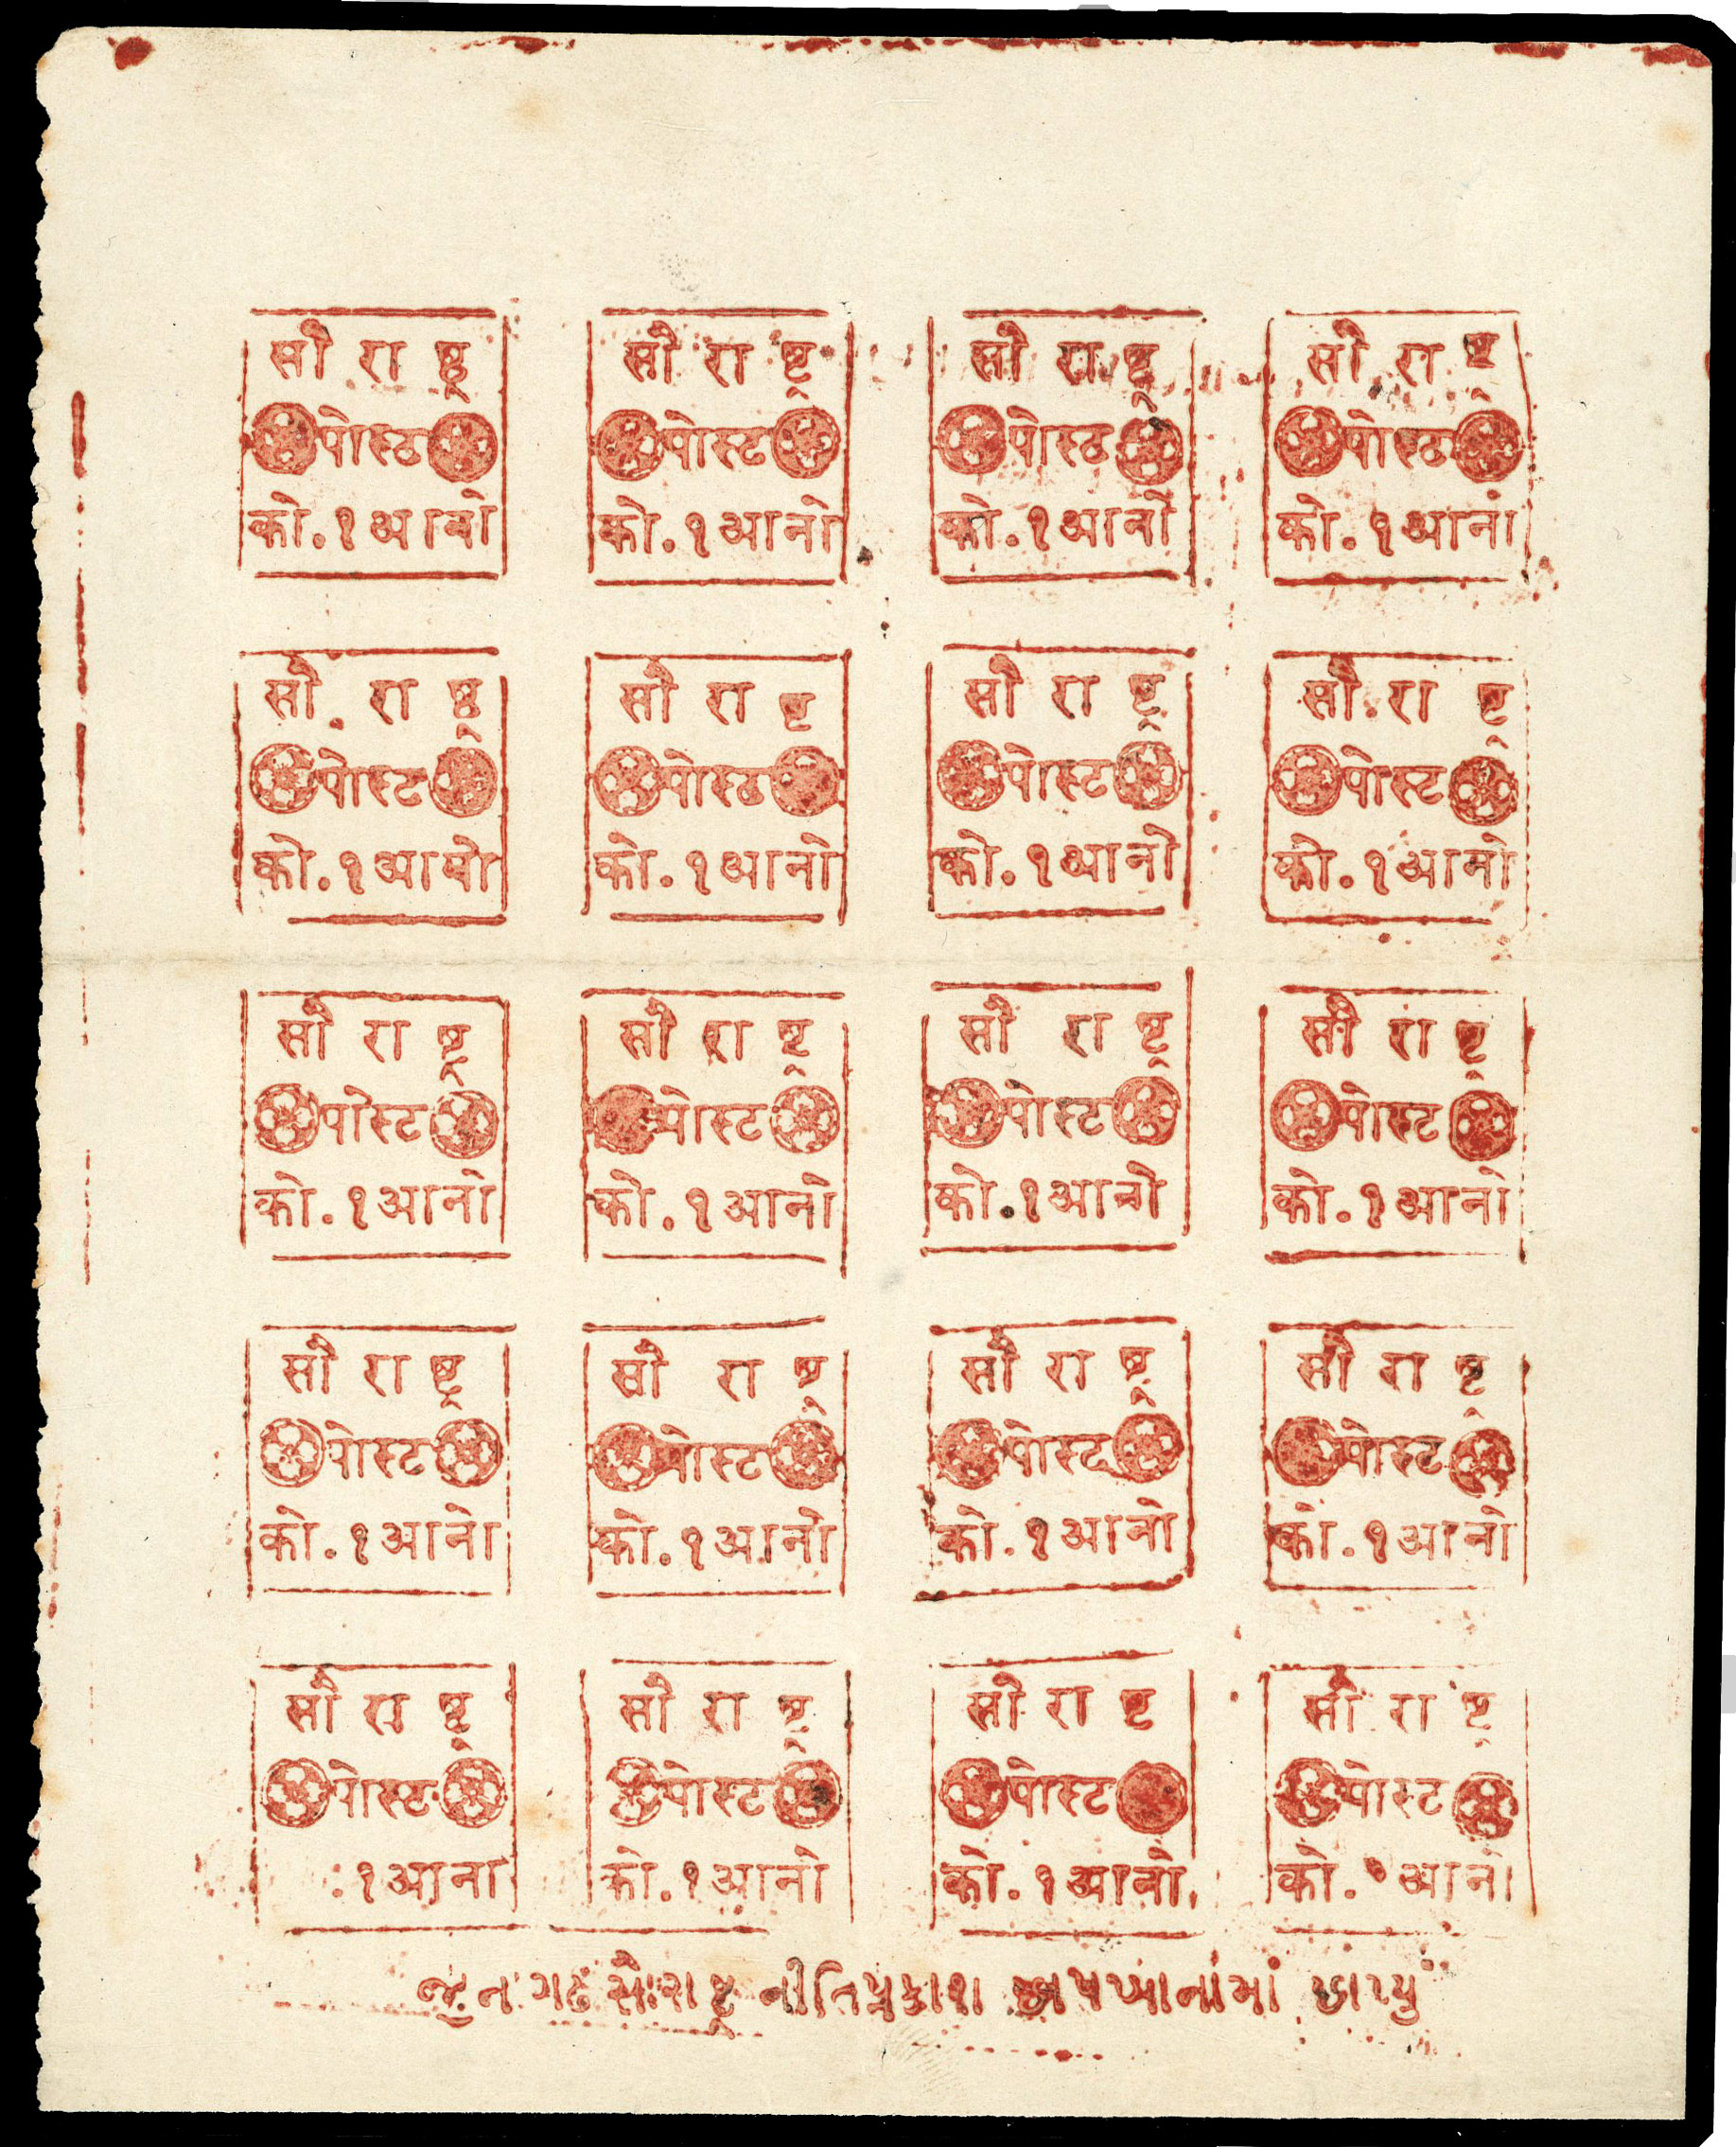 सौ रा ष्ट्र
पोस्ट
को. १ आनो
सौ रा ष्ट्र
पोस्ट
को. १ आनो
सौ रा ष्ट्र
पोस्ट
को. १ आनो
सौ रा ष्ट्र
पोस्ट
को. १ आनो
सौ रा ष्ट्र
पोस्ट
को. १ आनो
सौ रा ष्ट
पोस्ट
को. १ आनो
सौ रा ष्ट्र
पोस्ट
को. १ आनो
सौ रा ष्ट्र
पोस्ट
को. १ आनो
सौ रा ष्ट्र
पोस्ट
को. १ आनो
सौ रा ष्ट्र
पोस्ट
को. १ आनो
सौ रा ष्ट्र
पोस्ट
को. १ आनो
सौ रा ष्ट्र
पोस्ट
को. १ आनो
सौ रा ष्ट्र
पोस्ट
को. १ आनो
सौ रा ष्ट्र
पोस्ट
को. १ आनो
सौ रा ष्ट्र
पोस्ट
को. १ आनो
सौ रा ष्ट्र
पोस्ट
को. १ आनो
सौ रा ष्ट्र
पोस्ट
. १ आना
सौ रा ष्ट्र
पोस्ट
को. १ आनो
सौ रा ष्ट
पोस्ट
को. १ आनो
सौ रा ष्ट्र
पोस्ट
को. आनो
જુનાગઢ સૈારાષ્ટ્ર નીતિપ્રકાશ છાપખાનાંમાં છાપ્યું